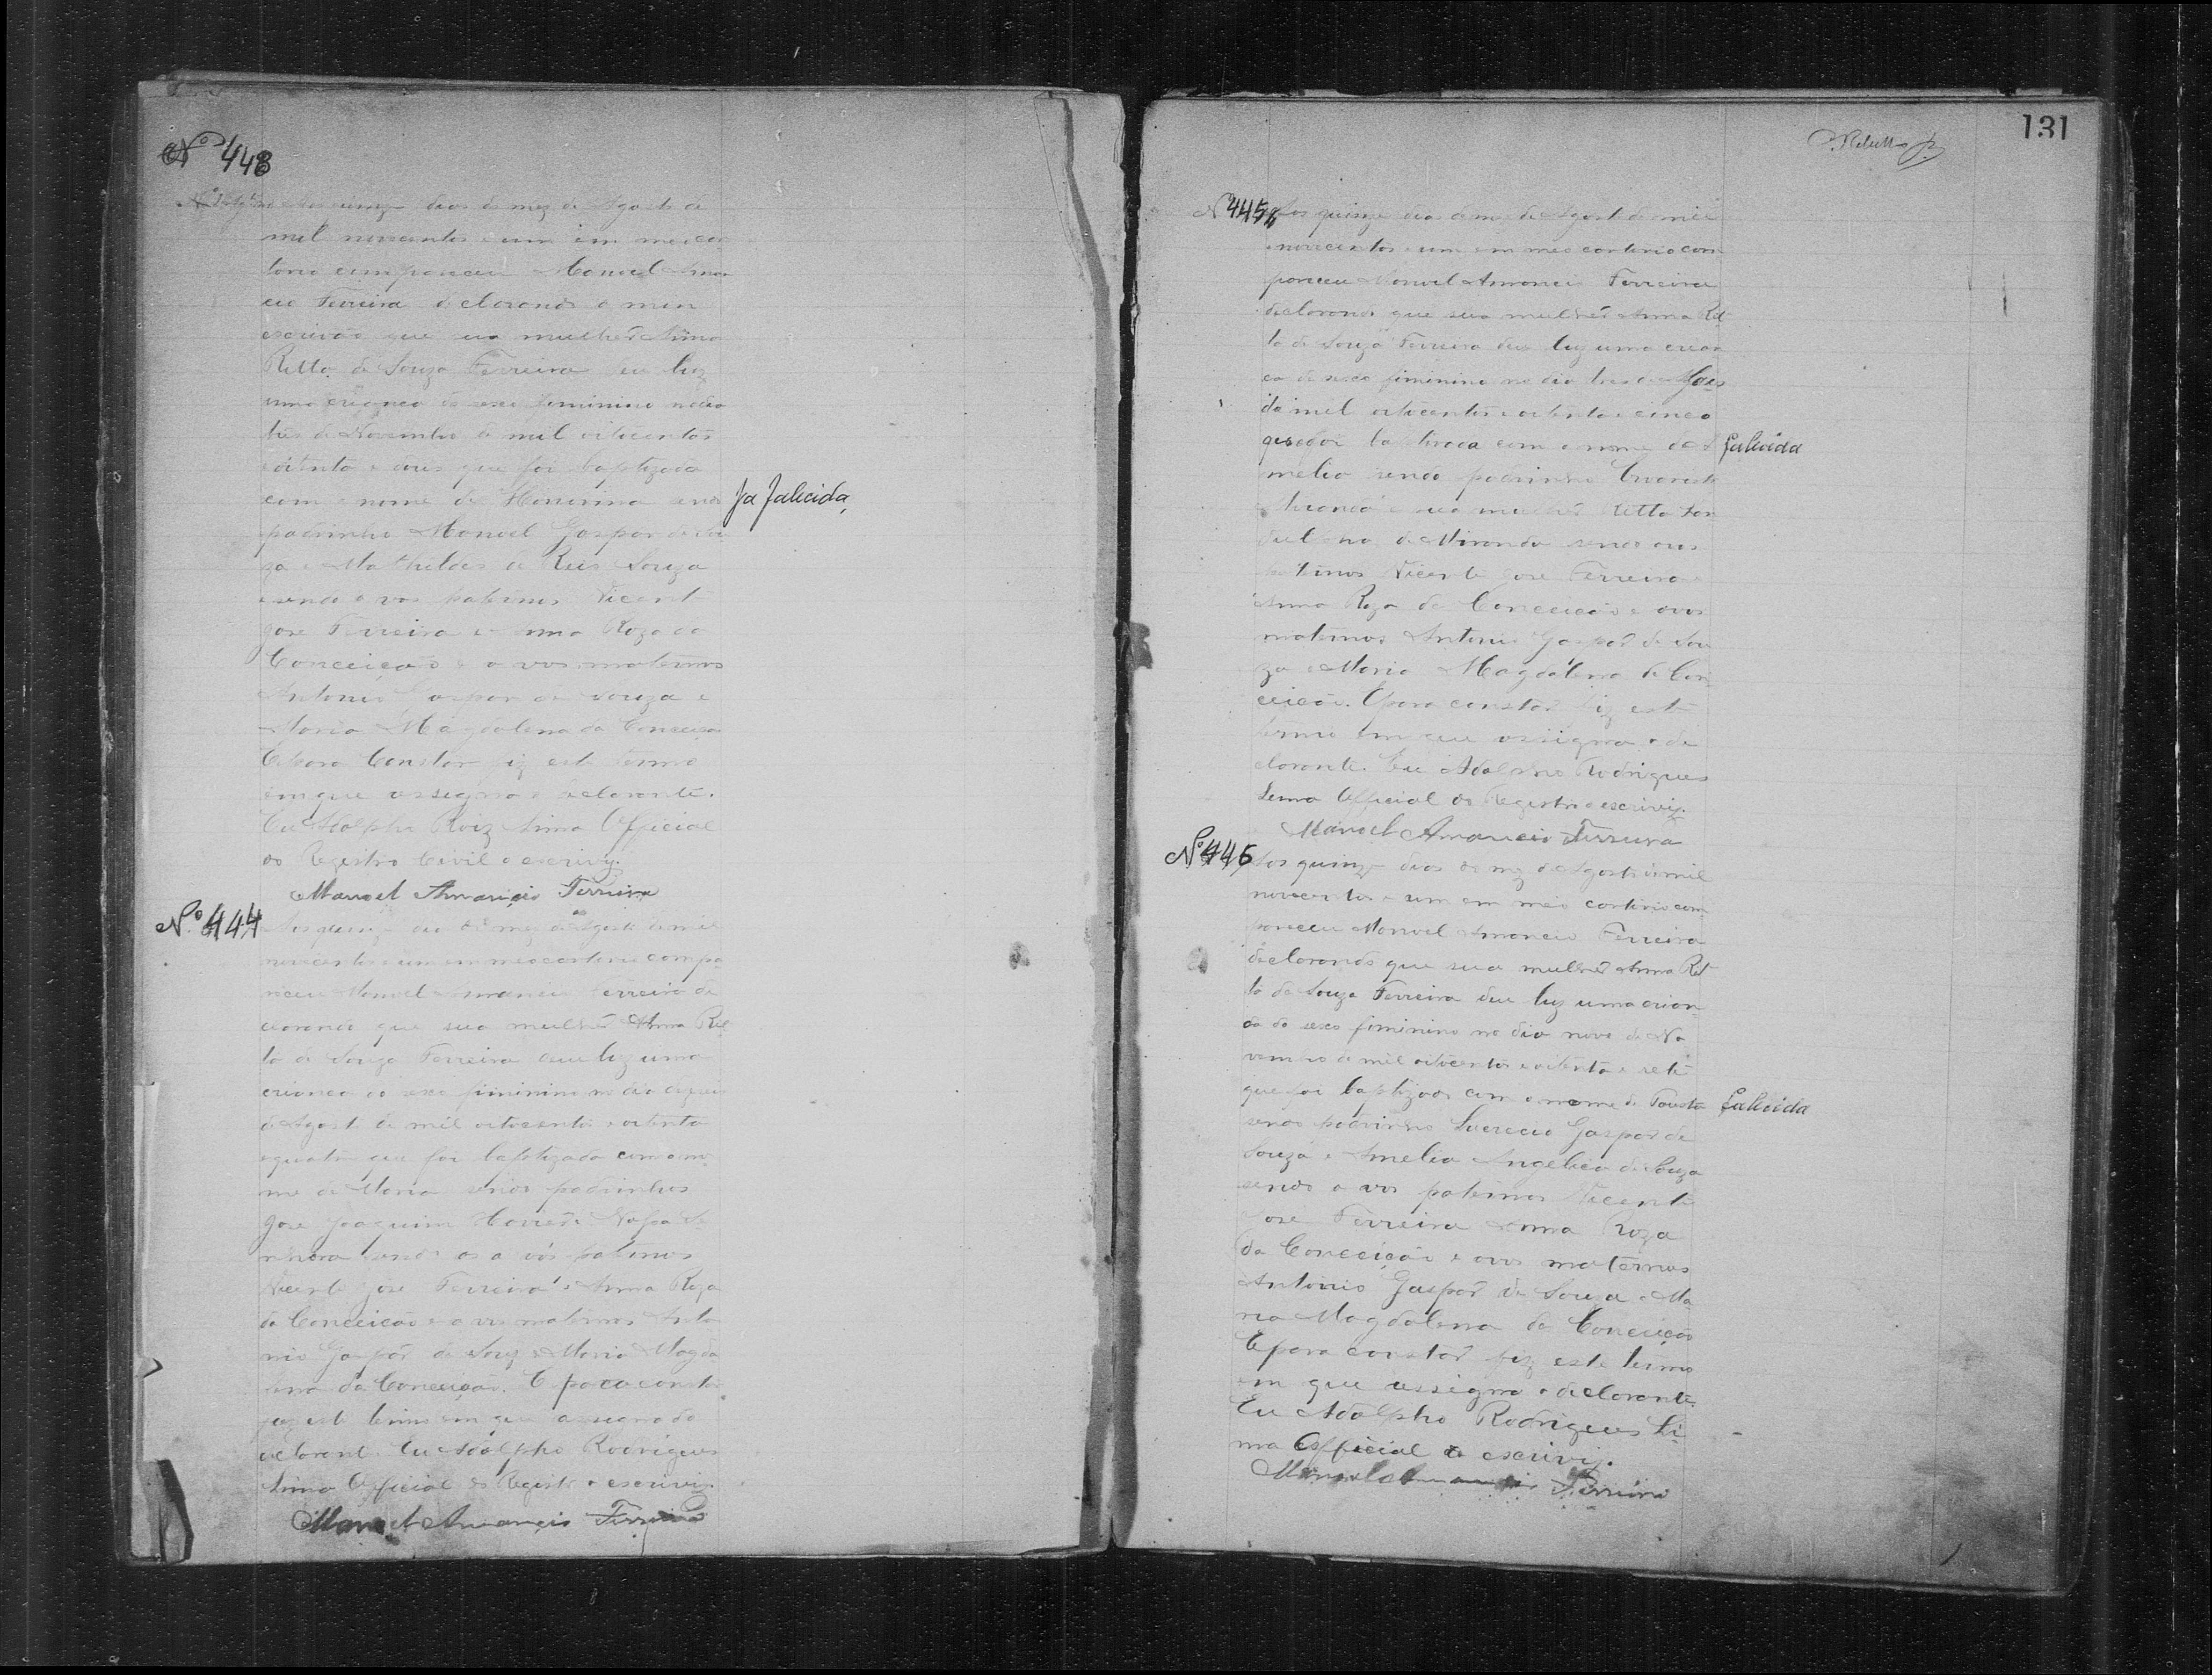 Nº 443
Aos quinze dias do mez de Agosto de
mil novecentos e um em meu car
torio compareceu Manoel Aman
cio Ferreira declarando a mim
escrivão que sua mulher Anna
Ritta de Souza Ferreira deu luz
uma criança do sexo feminino no dia
tres de Novembro de mil oitocentos
oitenta e dous que foi baptizada
com o nome de Honorina sendo
Ja falicida,
padrinho Manoel Gaspar de Sou
za e Mathildes de Reis Souza
sendo avos paternos Vicente
José Ferreira e Anna Roza da
Conceição e avos maternos
Antonio Gaspar de Souza e
Maria Magdalena da Conceiça
E para Constar fiz este termo
em que assigna o declarante.
Eu Adolpho Roiz Lima Official
do Registro Civil o escrivy.
Manoel Amancio Ferreira
Nº 444
Aos quinze dias do mez de Agosto de mil
novecentos e um em meo cartorio compa
receu Manoel Amancio Ferreira de
clarando que sua mulher Anna Rit
ta de Souza Ferreira deu luz uma
criança do sexo feminino no dia
de Agosto de mil oitocentos e oitenta
e quatro que foi baptizada com o no
me de Maria sendo padrinhos
José Joaquim e Nossa Se
nhora sendo os avós paternos
Vicente José Ferreira e Anna Roza
da Conceição e avos maternos Anto
nio Gaspar de Souz e Maria Magda
lena da Conceição. E para constar
fiz este termo em que assigna do
declarante. Eu Adolpho Rodrigues
Lima Official do Registro o escrivy
Manoel Amancio Ferreira
131
Nº 445
Aos quinze dias do mez de Agosto de mil
novecentos e um em meo cartorio com
pareceu Manoel Amancio Ferreira
declarando que sua mulher Anna Rit
ta de Souza Ferreira deu luz uma crean
ça do sexo feminino no dia tres de
de mil oitocentos e oitenta e cinco
que foi baptizada com o nome de A
falicida
melia sendo padrinho Evaristo
Miranda e sua mulher Ritta
de Miranda sendo avos
paternos Vicente José Ferreira e
Anna Roza da Conceição e avos
maternos Antonio Gaspar de Sou
za e Maria Magdalena da Con
ceição. E para constar fiz este
termo em que assigna o de
clarante. Eu Adolpho Rodrigues
Lima Official do Registro o escrivy.
Manoel Amancio Ferreira
Nº 446
Aos quinze dias do mez de Agosto de mil
novecentos e um em meo cartorio com
pareceu Manoel Amancio Ferreira
declarando que sua mulher Anna Rit
ta de Souza Ferreira deu luz uma crian
ça do sexo feminino no dia nove de No
vembro de mil oitocentos e oitenta e sete
que foi baptizada com o nome de Fausta
falicida
sendo padrinho Lucrecio Gaspar de
Souza e Amelia Angelica de Souza
sendo avos paternos Vicente
José Ferreira e Anna Roza
da Conceição e avos maternos
Antonio Gaspar de Souza e Ma
ria Magdalena da Conceição
E para constar fiz este termo
em que assigna o declarante.
Eu Adolpho Rodrigues Li
ma Official o escrivy.
Manoel Amancio Ferreira